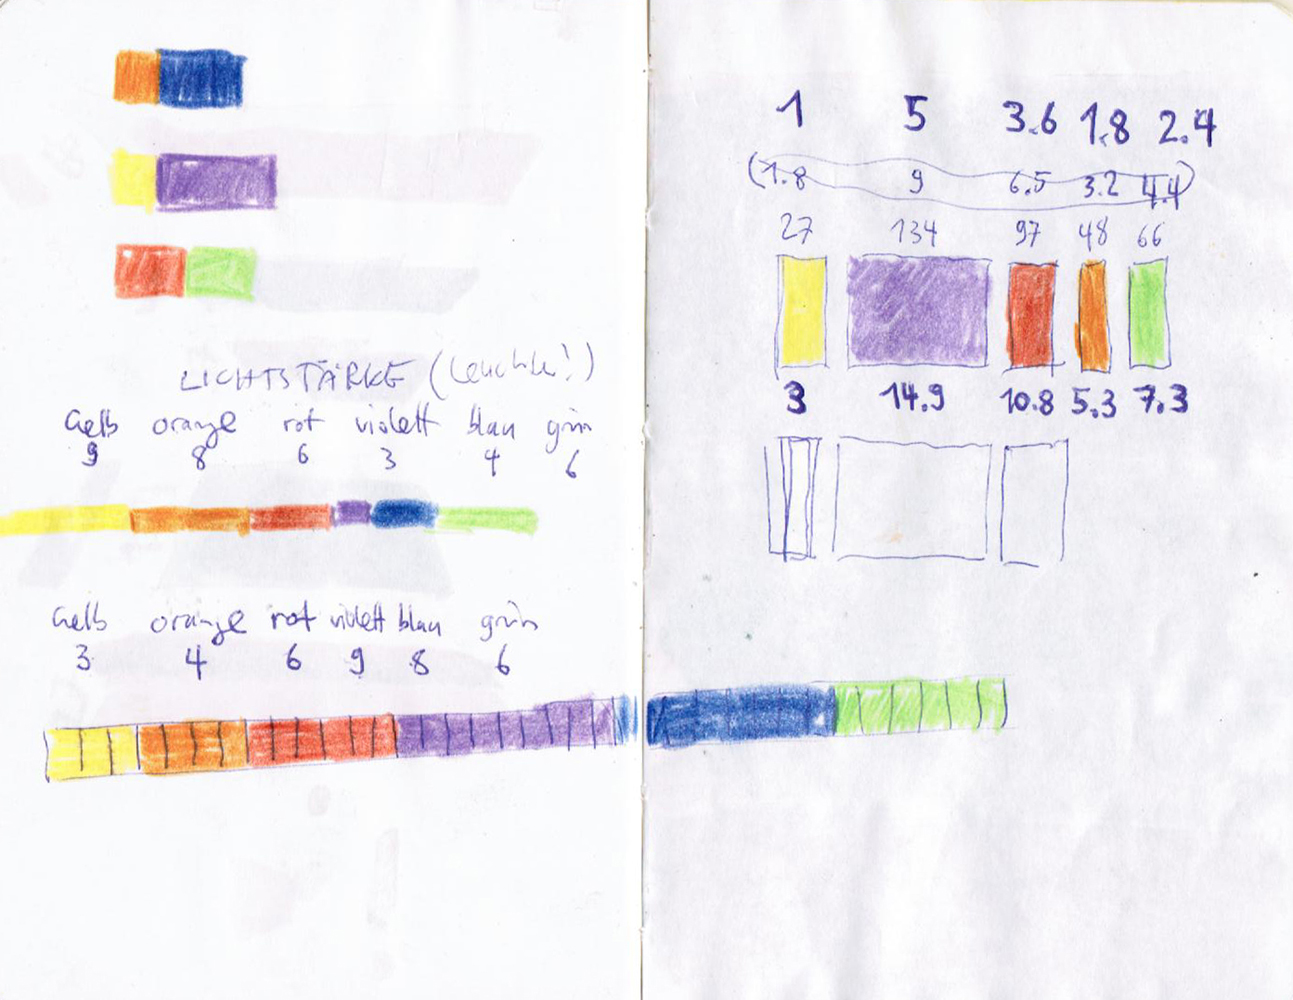 LICHTSTÄRKE (Leuchtkr!)
Gelb orange rot violett blau grün
9 8 6 3 4 6
Gelb orange rot violett blau grün
3 4 6 9 8 6
1 5 3.6 1.8 2.4
(1.8 9 6.5 3.2 4.4)
27 134 97 48 66
3 14.9 10.8 5.3 7.3